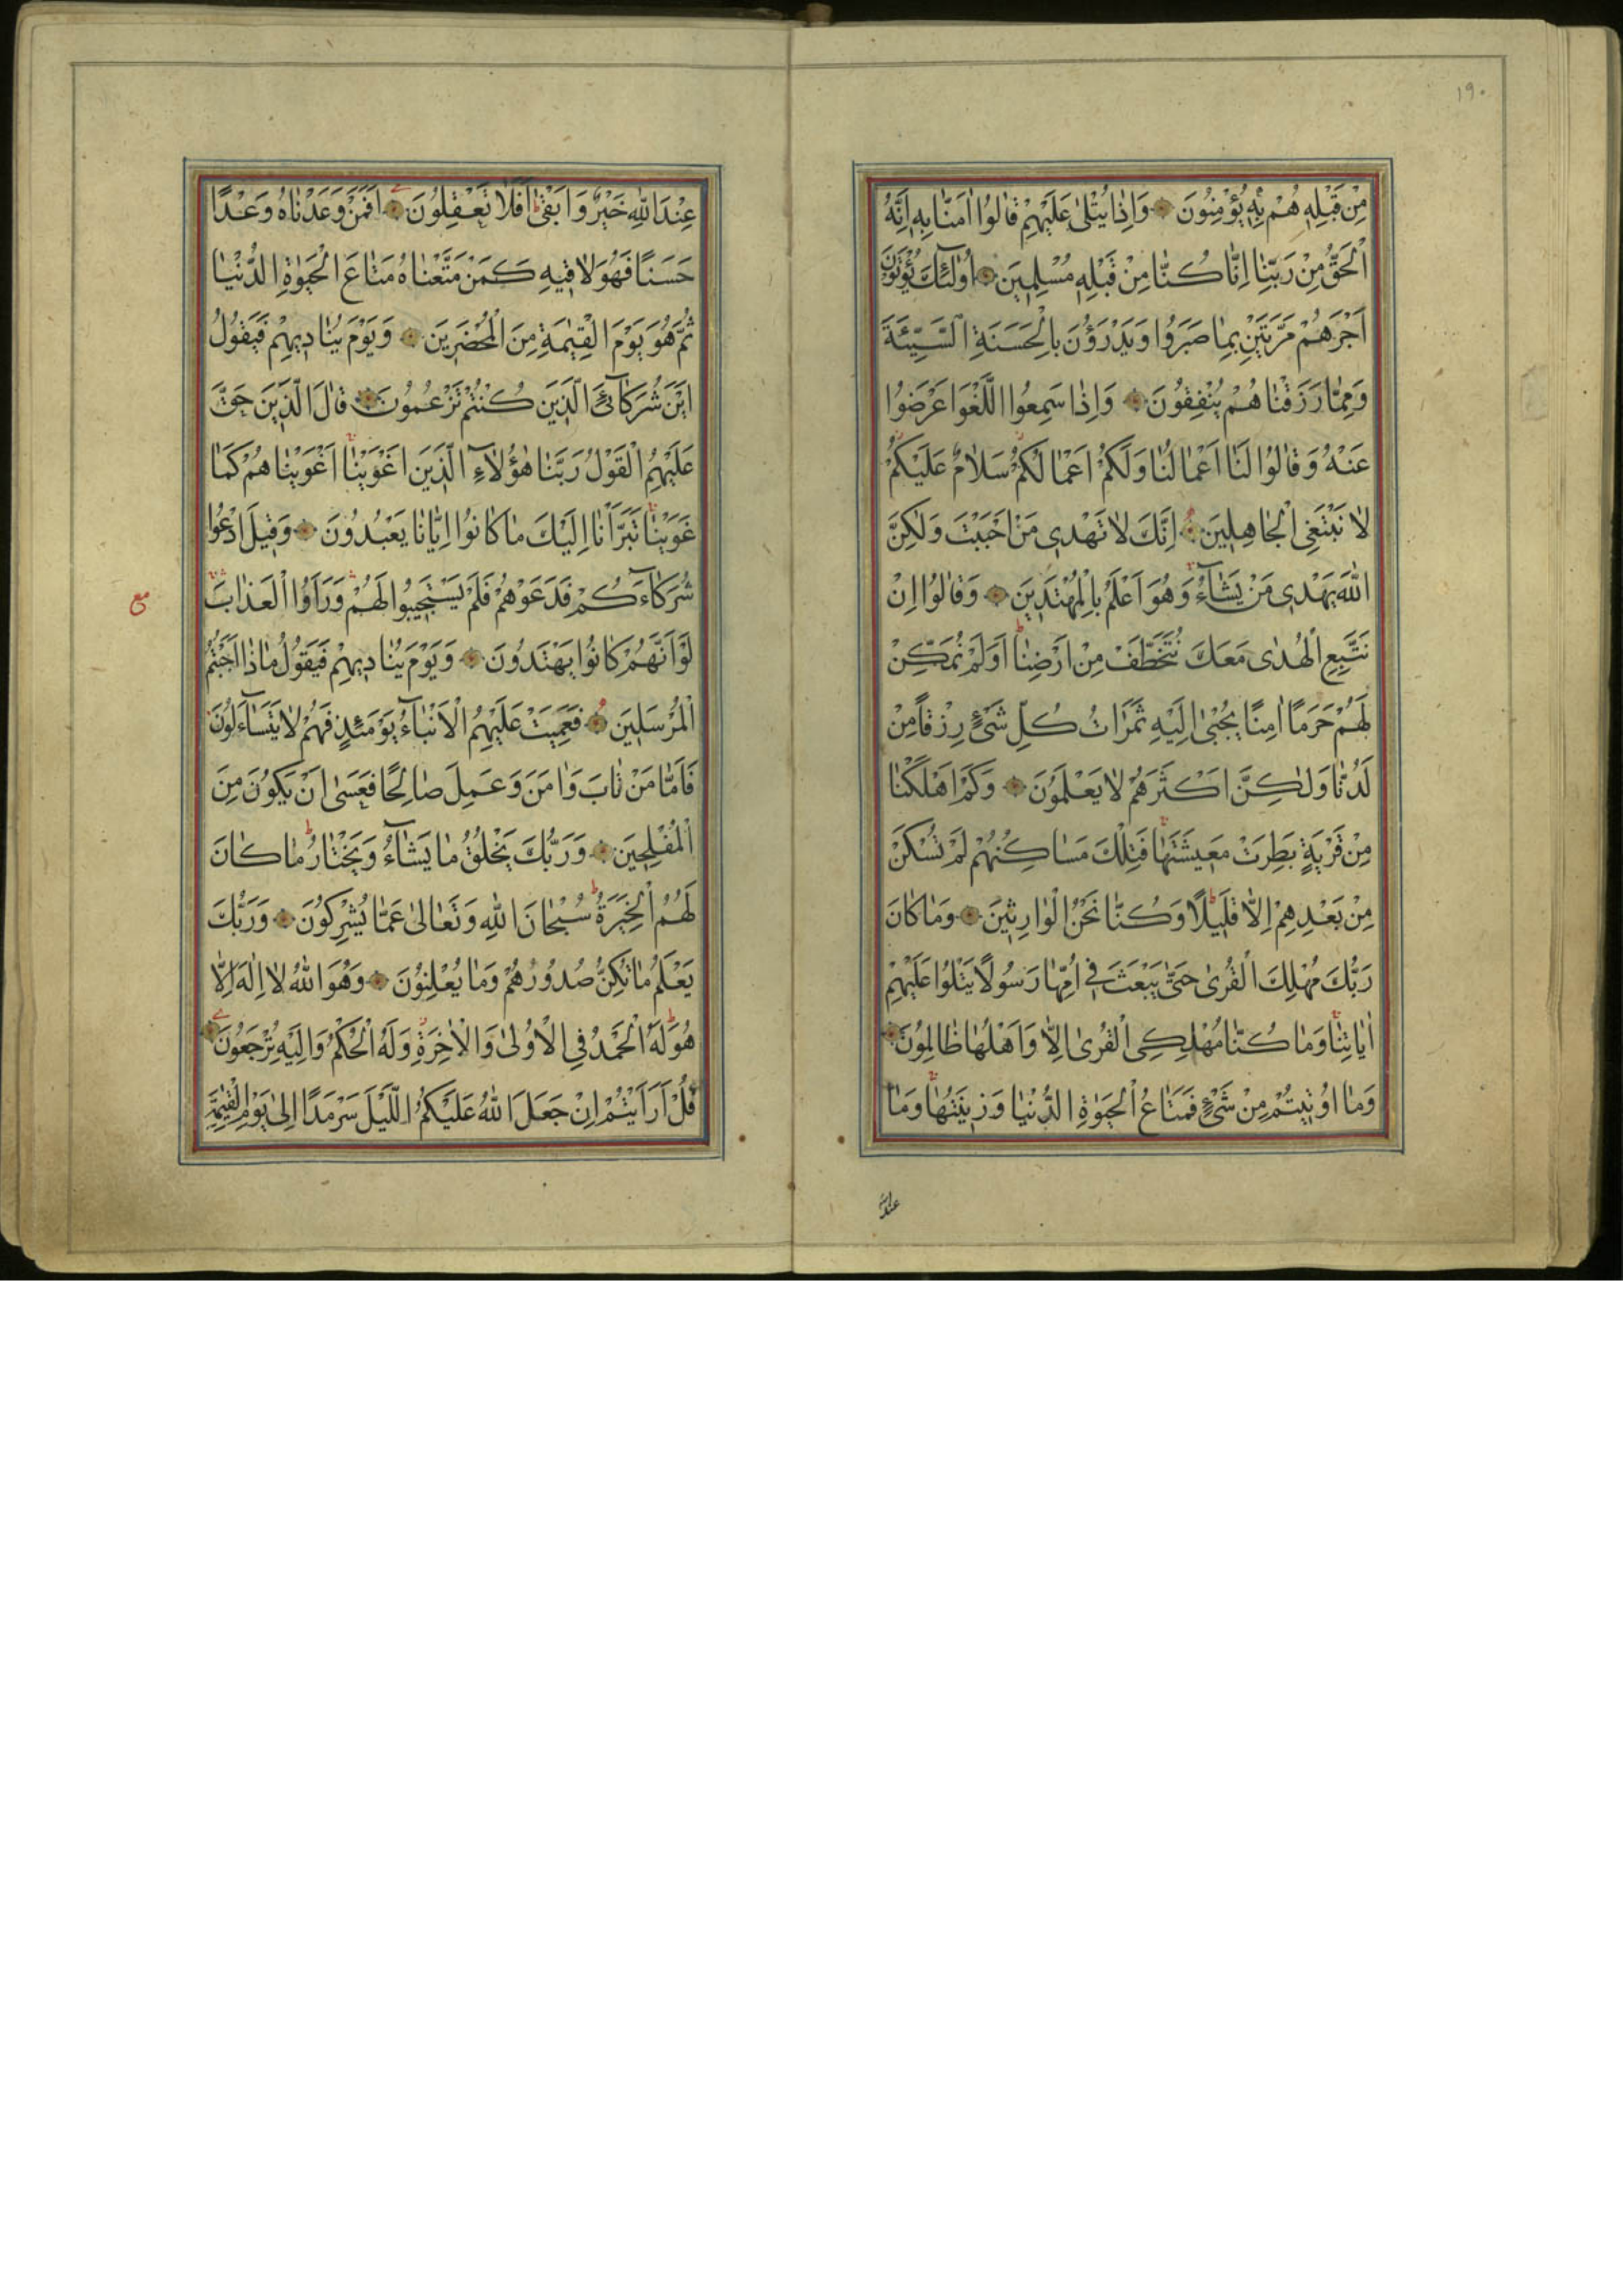 ١٩٠
مِنْ قَبْلِهِ هُمْ بِهِ يُؤْمِنُونَ وَاِذَا يُتْلٰى عَلَيْهِمْ قَالُوا اٰمَنَّا بِهِ اِنَّهُ
الْحَقُّ مِنْ رَبِّنَا اِنَّا كُنَّا مِنْ قَبْلِهِ مُسْلِمِينَ اُولٰئِكَ يُؤْتَوْنَ
اَجْرَهُمْ مَرَّتَيْنِ بِمَا صَبَرُوا وَيَدْرَؤُنَ بِالْحَسَنَةِ السَّيِّئَةَ
وَمِمَّا رَزَقْنَاهُمْ يُنْفِقُونَ وَاِذَا سَمِعُوا اللَّغْوَ اَعْرَضُوا
عَنْهُ وَقَالُوا لَنَا اَعْمَالُنَا وَلَكُمْ اَعْمَالُكُمْ سَلَامٌ عَلَيْكُمْ
لَا نَبْتَغِي الْجَاهِلِينَ اِنَّكَ لَا تَهْدِي مَنْ اَحْبَبْتَ وَلٰكِنَّ
اللّٰهَ يَهْدِي مَنْ يَشَآءُ وَهُوَ اَعْلَمُ بِالْمُهْتَدِينَ وَقَالُوا اِنْ
نَتَّبِعِ الْهُدٰى مَعَكَ نُتَخَطَّفْ مِنْ اَرْضِنَا اَوَلَمْ نُمَكِّنْ
لَهُمْ حَرَمًا اٰمِنًا يُجْبٰى اِلَيْهِ ثَمَرَاتُ كُلِّ شَيْءٍ رِزْقًا مِنْ
لَدُنَّا وَلٰكِنَّ اَكْثَرَهُمْ لَا يَعْلَمُونَ وَكَمْ اَهْلَكْنَا
مِنْ قَرْيَةٍ بَطِرَتْ مَعِيشَتَهَا فَتِلْكَ مَسَاكِنُهُمْ لَمْ تُسْكَنْ
مِنْ بَعْدِهِمْ اِلَّا قَلِيلًا وَكُنَّا نَحْنُ الْوَارِثِينَ وَمَا كَانَ
رَبُّكَ مُهْلِكَ الْقُرٰى حَتّٰى يَبْعَثَ فِي اُمِّهَا رَسُولًا يَتْلُوا عَلَيْهِمْ
اٰيَاتِنَا وَمَا كُنَّا مُهْلِكِي الْقُرٰى اِلَّا وَاَهْلُهَا ظَالِمُونَ
وَمَا اُوتِيتُمْ مِنْ شَيْءٍ فَمَتَاعُ الْحَيٰوةِ الدُّنْيَا وَزِينَتُهَا وَمَا
عندالله
عِنْدَ اللّٰهِ خَيْرٌ وَاَبْقٰى اَفَلَا تَعْقِلُونَ اَفَمَنْ وَعَدْنَاهُ وَعْدًا
حَسَنًا فَهُوَ لَاقِيهِ كَمَنْ مَتَّعْنَاهُ مَتَاعَ الْحَيٰوةِ الدُّنْيَا
ثُمَّ هُوَ يَوْمَ الْقِيٰمَةِ مِنَ الْمُحْضَرِينَ وَيَوْمَ يُنَادِيهِمْ فَيَقُولُ
اَيْنَ شُرَكَآئِيَ الَّذِينَ كُنْتُمْ تَزْعُمُونَ قَالَ الَّذِينَ حَقَّ
عَلَيْهِمُ الْقَوْلُ رَبَّنَا هٰؤُلَآءِ الَّذِينَ اَغْوَيْنَا اَغْوَيْنَاهُمْ كَمَا
غَوَيْنَا تَبَرَّاْنَا اِلَيْكَ مَا كَانُوا اِيَّانَا يَعْبُدُونَ وَقِيلَ ادْعُوا
شُرَكَآءَكُمْ فَدَعَوْهُمْ فَلَمْ يَسْتَجِيبُوا لَهُمْ وَرَاَوُا الْعَذَابَ
مع
لَوْ اَنَّهُمْ كَانُوا يَهْتَدُونَ وَيَوْمَ يُنَادِيهِمْ فَيَقُولُ مَاذَا اَجَبْتُمُ
الْمُرْسَلِينَ فَعَمِيَتْ عَلَيْهِمُ الْاَنْبَآءُ يَوْمَئِذٍ فَهُمْ لَا يَتَسَآءَلُونَ
فَاَمَّا مَنْ تَابَ وَاٰمَنَ وَعَمِلَ صَالِحًا فَعَسٰى اَنْ يَكُونَ مِنَ
الْمُفْلِحِينَ وَرَبُّكَ يَخْلُقُ مَا يَشَآءُ وَيَخْتَارُ مَا كَانَ
لَهُمُ الْخِيَرَةُ سُبْحَانَ اللّٰهِ وَتَعَالٰى عَمَّا يُشْرِكُونَ وَرَبُّكَ
يَعْلَمُ مَا تُكِنُّ صُدُورُهُمْ وَمَا يُعْلِنُونَ وَهُوَ اللّٰهُ لَا اِلٰهَ اِلَّا
هُوَ لَهُ الْحَمْدُ فِي الْاُولٰى وَالْاٰخِرَةِ وَلَهُ الْحُكْمُ وَاِلَيْهِ تُرْجَعُونَ
قُلْ اَرَاَيْتُمْ اِنْ جَعَلَ اللّٰهُ عَلَيْكُمُ اللَّيْلَ سَرْمَدًا اِلٰى يَوْمِ الْقِيٰمَةِ